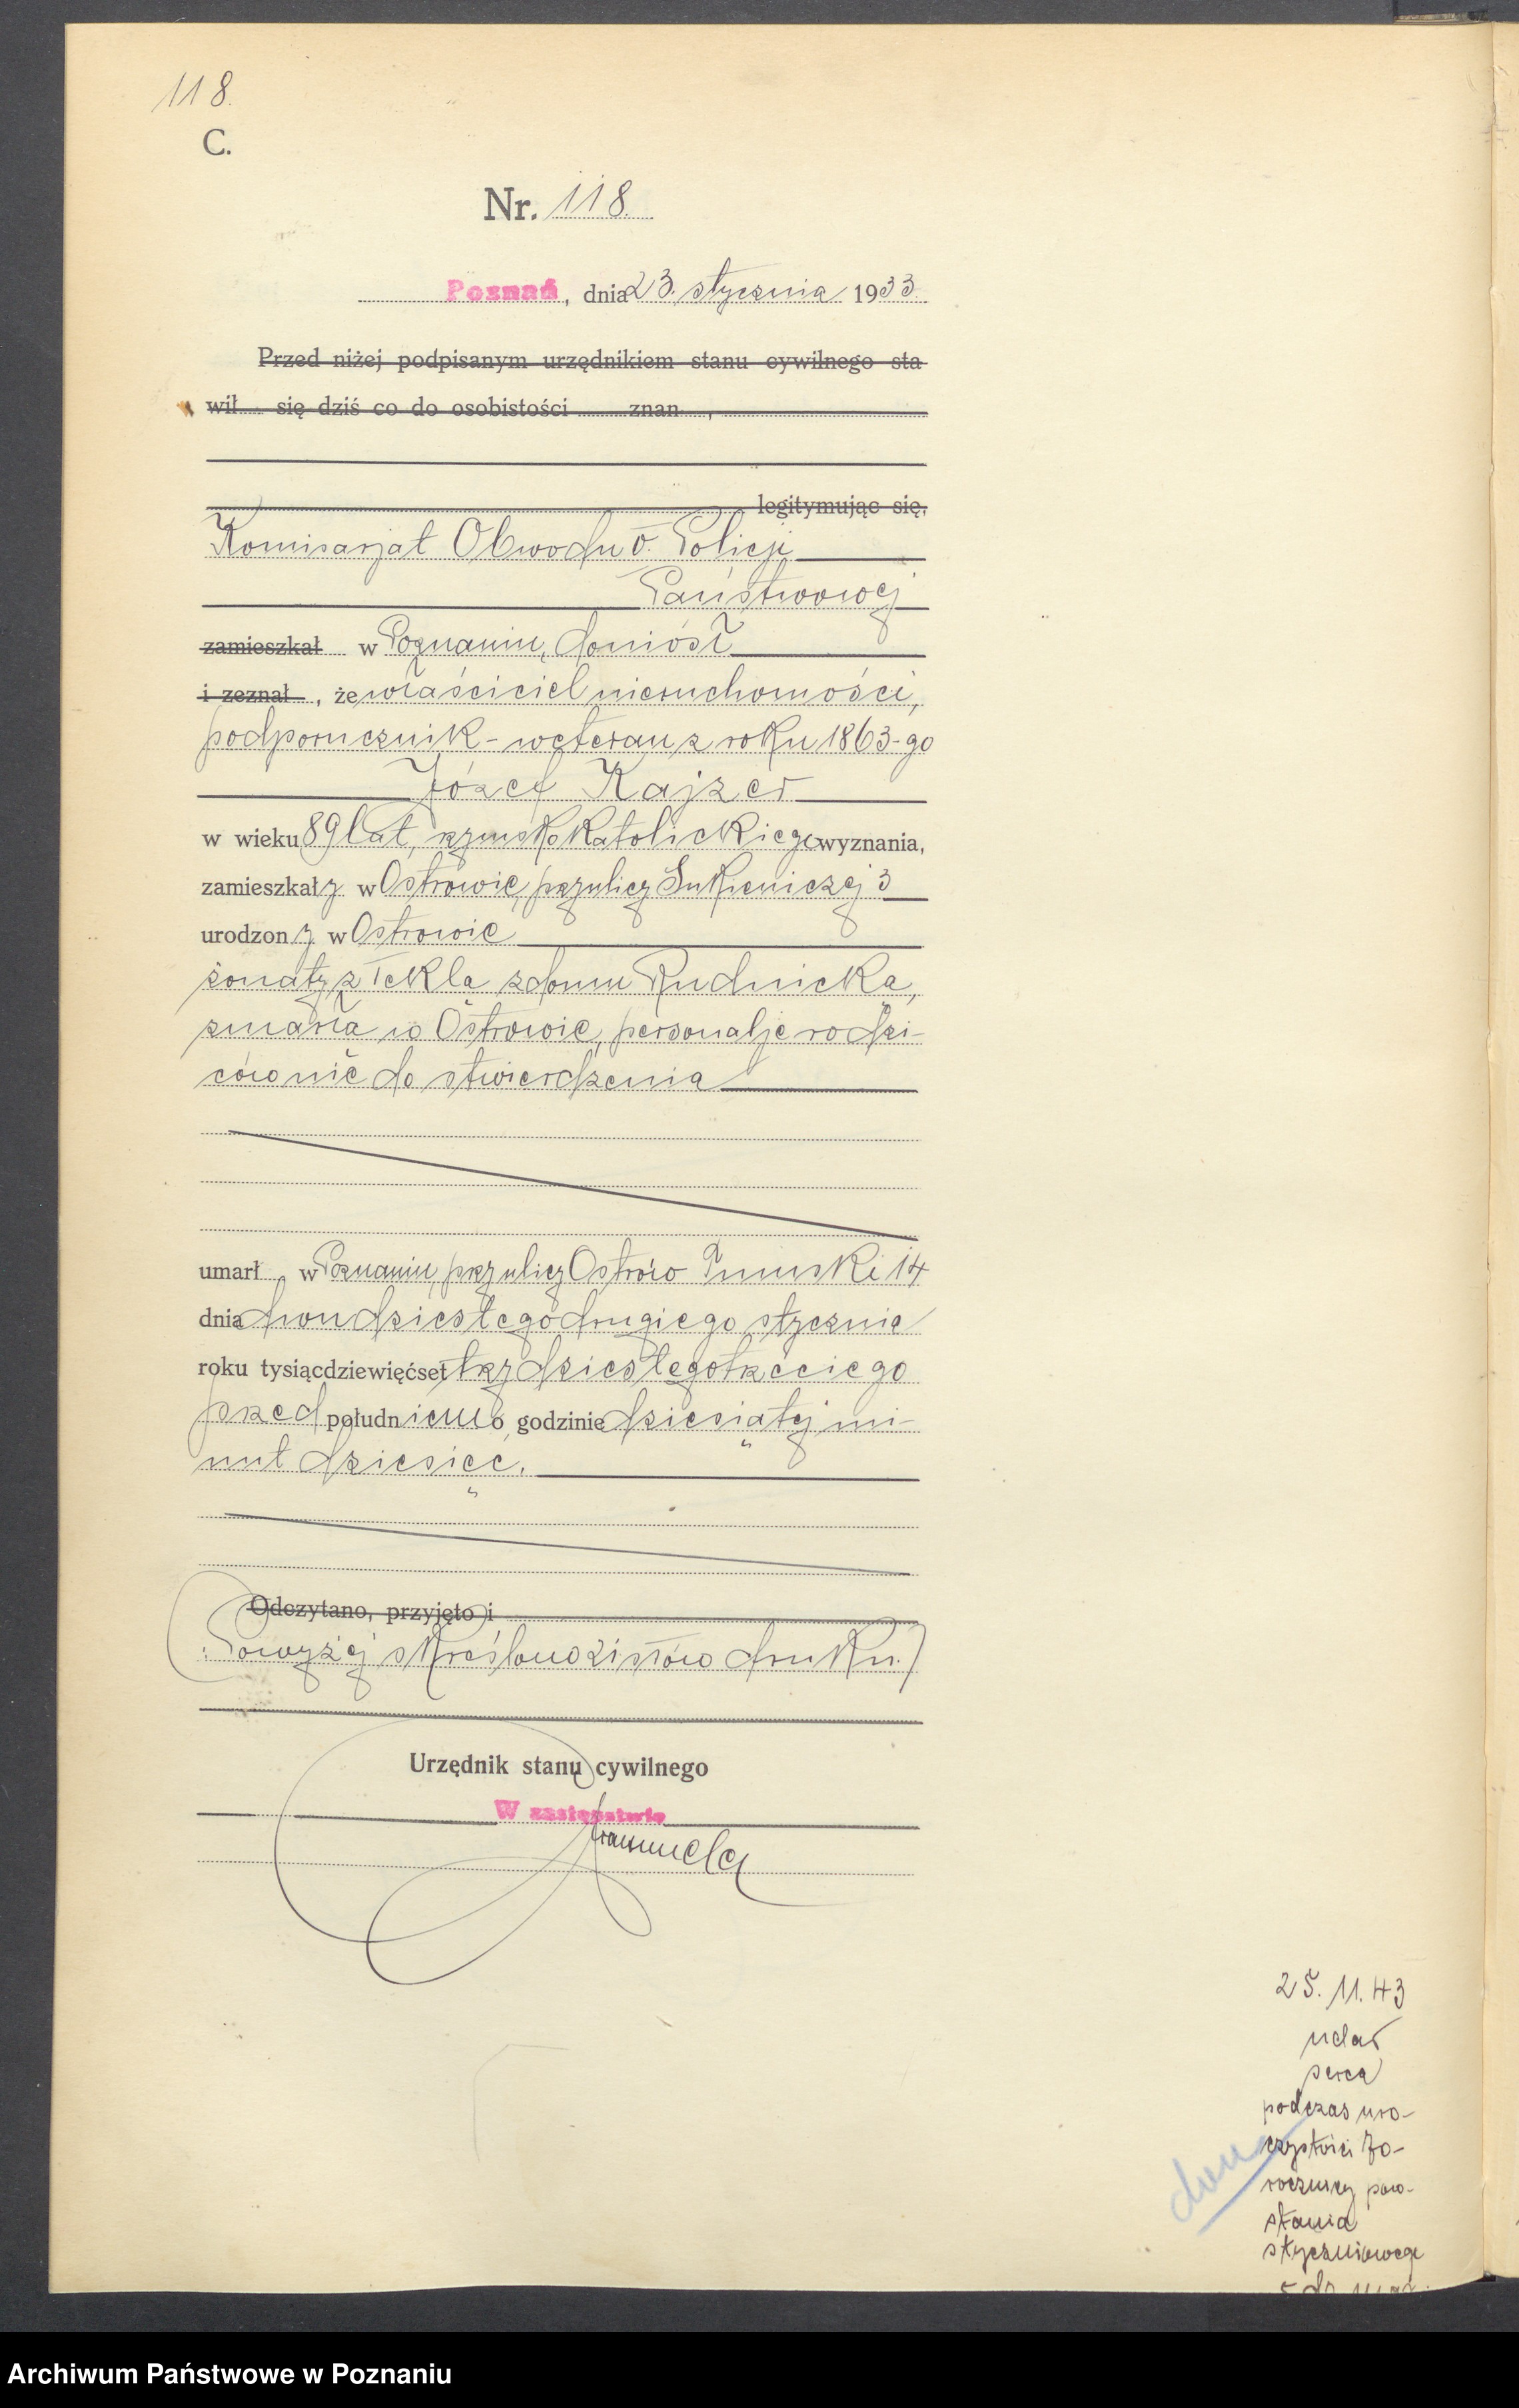 118.
C.
Nr. 118.
Poznań, dnia 23. stycznia 1933.
Przed niżej podpisanym urzędnikiem stanu cywilnego sta
wił się dziś co do osobistości znan ,
legitymując się,
Komisarjat Obwodu V. Policji
Państwowej
zamieszkał w Poznaniu, doniósł
i zeznał , że właściciel nieruchomości,
podporucznik - weteran z roku 1863-go
Józef Kajzer
w wieku 89 lat, rzymsko katolickiego wyznania,
zamieszkały w Ostrowie, przy ulicy Sukieniczej 3
urodzony w Ostrowie
żonaty z Teklą z domu Rudnicką,
zmarła w Ostrowie, personalje rodzi-
ców nie do stwierdzenia
umarł w Poznaniu, przy ulicy Ostrów Tumski 14
dnia dwudziestego drugiego stycznia
roku tysiącdziewięćset trzydziestego trzeciego
przed południem o godzinie dziesiątej mi-
nut dziesięć.
Odczytano, przyjęto i
(: Powyżej skreślono 21 słów druku.)
Urzędnik stanu cywilnego
W zastępstwie
25. 11. 43
udar
serca
podczas uro-
czystości 70-
rocznicy pow-
stania
styczniowego
Archiwum Państwowe w Poznaniu